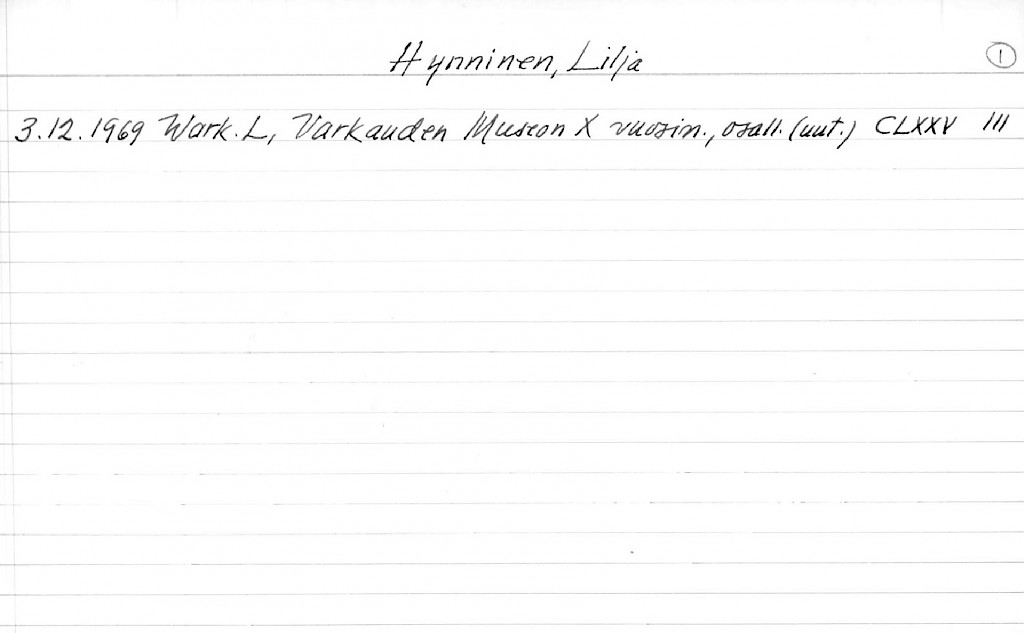 Hynninen, Lilja ①
3.12.1969 Wark. L, Varkauden Museon X vuosin., osall. (uut.) CLXXV III